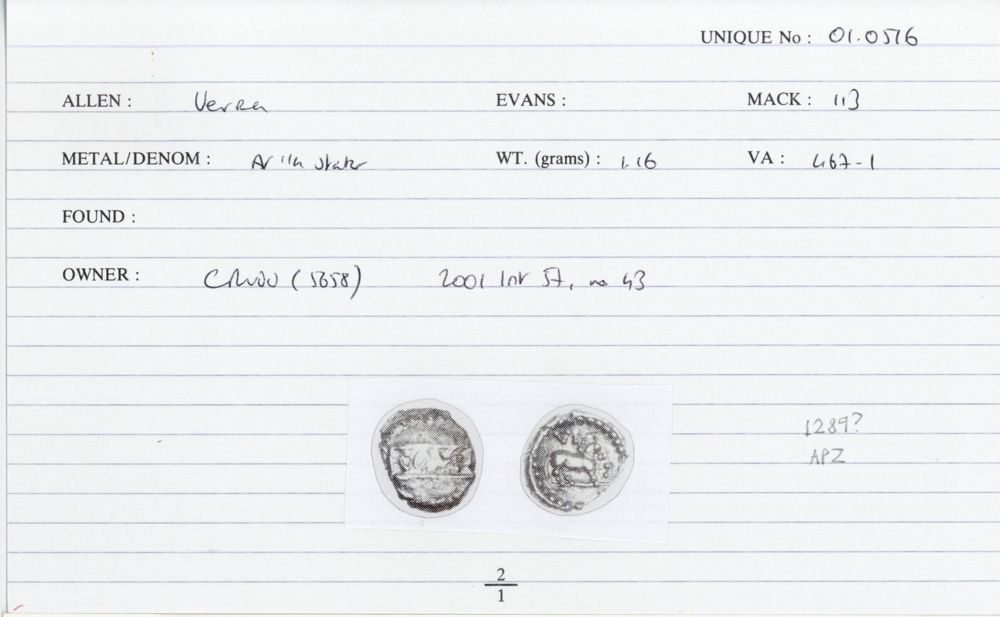 UNIQUE No : 01.0576
ALLEN : Verica EVANS : MACK : 113
METAL/DENOM : AV 1/4 stater WT. (grams) : 1.16 VA : 467-1
FOUND :
OWNER : (5658) 2001 57, no 43
1289?
APZ
2
1